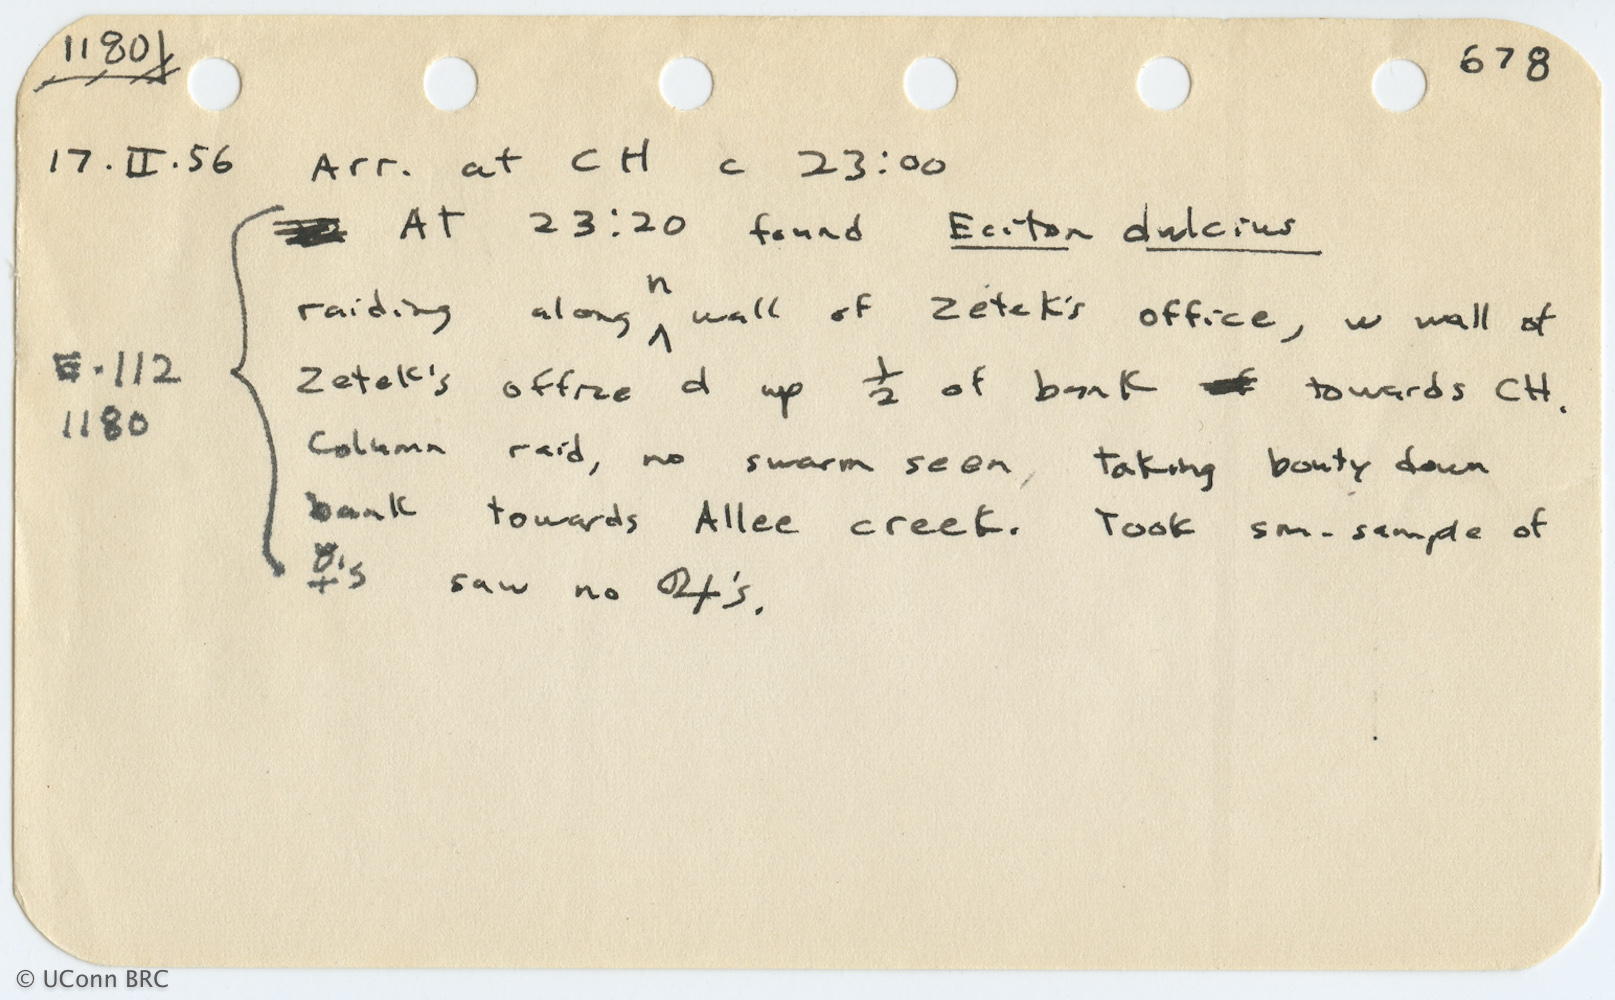 1180
678
17.II.56 Arr. at CH c 23:00
At 23:20 found Eciton dulcius
raiding along n wall of Zetek's office, w wall of
Zetek's office d up ½ of bank towards CH.
E-112
1180
Column raid, no swarm seen, taking bouty down
bank towards Allee creek. Took sm. sample of
☿'s saw no ♃'s.
© UConn BRC